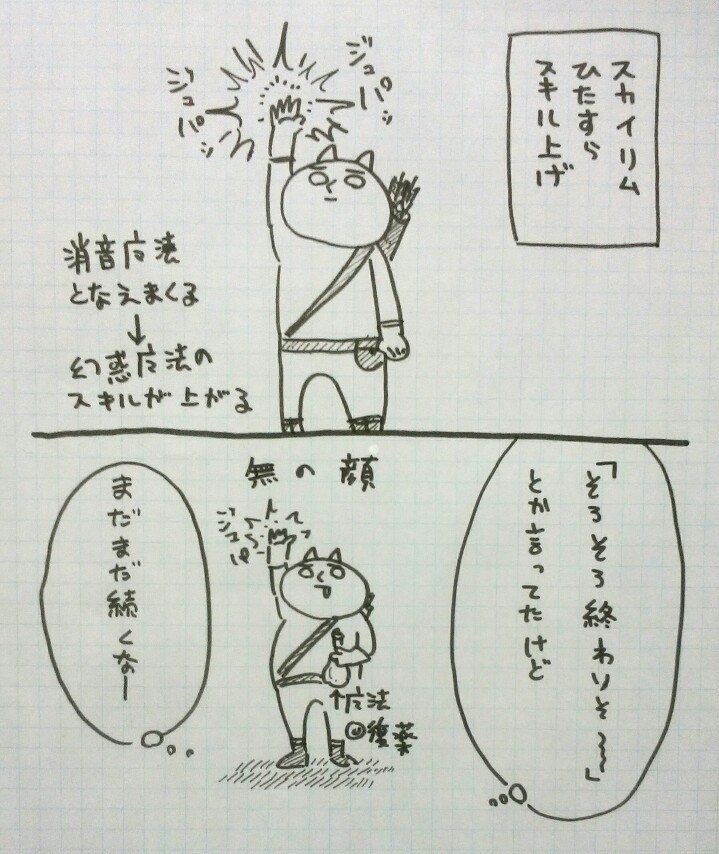 スカイリム
ひたすら
スキル上げ
ジュパッ
ジュパッ
消音広法
となえまくる
↓
幻惑広法の
スキルが上がる
「そろそろ終わりそ〜〜」
とか言ってたけど
無の顔
ジュパ
↑广法
回復薬
まだまだ続くなー